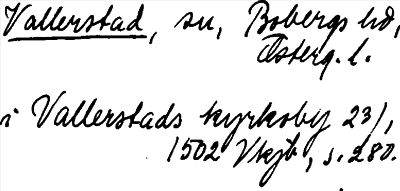 Vallerstad, sn, Bobergs hd,
Österg. l.
i Vallerstads kyrkoby 23/1
1502 Vkjb, s. 280.